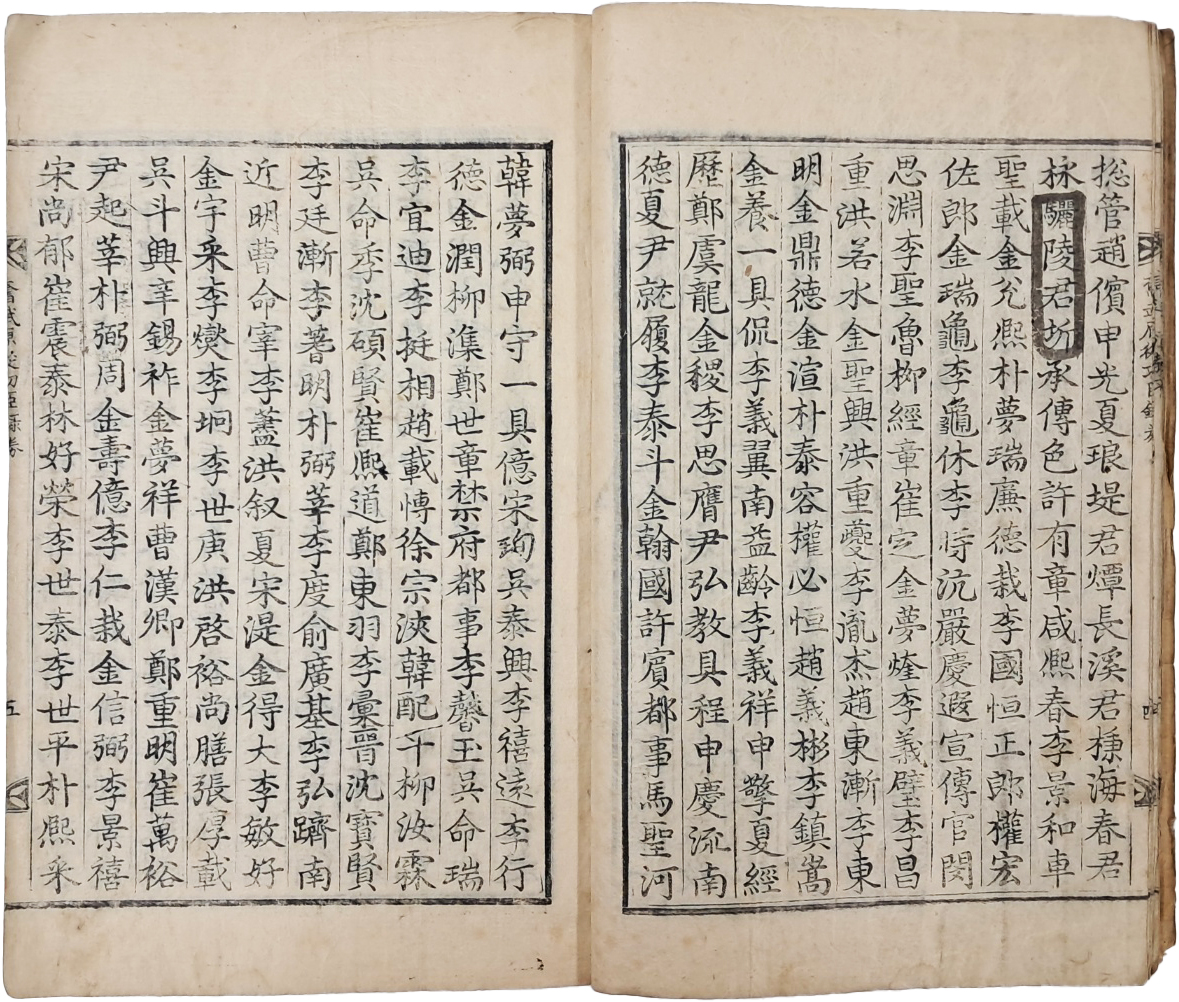 捴管趙儐申光夏琅堤君燂長溪君槏海春君
栐驪陵君圻承傳色許有章咸熙春李景和車
聖載金兊熙朴夢瑞廉德栽李國恒正郎權宏
佐郎金瑞龜李龜休李恃沆嚴慶遐宣傳官閔
思淵李聖魯柳經章崔定金夢煃李義璧李昌
重洪若水金聖興洪重夔李胤杰趙東漸李東
明金鼎德金渲朴泰容權必恒趙義彬李鎮嵩
金養一具侃李義翼南益齡李義祥申擎夏經
歷鄭虞龍金稷李思膺尹弘教具程申慶流南
德夏尹就履李泰斗金翰國許賓都事馬聖河
韓夢弼申守一具億宋珣吳泰興李禧遠李行
德金潤柳濈鄭世章禁府都事李馨玉吳命瑞
李宜迪李挺相趙載慱徐宗浹韓配千柳汝霖
吳命季沈碩賢崔熙道鄭東羽李彙晉沈寶賢
李廷漸李著明朴弼莘李度俞廣基李弘躋南
近明曹命宰李藎洪叙夏宋湜金得大李敏好
金宇釆李爕李坰李世庚洪啓裕尚膳張厚載
吳斗興辛錫祚金夢祥曹漢卿鄭重明崔萬裕
尹起莘朴弼周金壽億李仁栽金信弼李景禧
宋尚郁崔震泰林好榮李世泰李世平朴熙釆
五